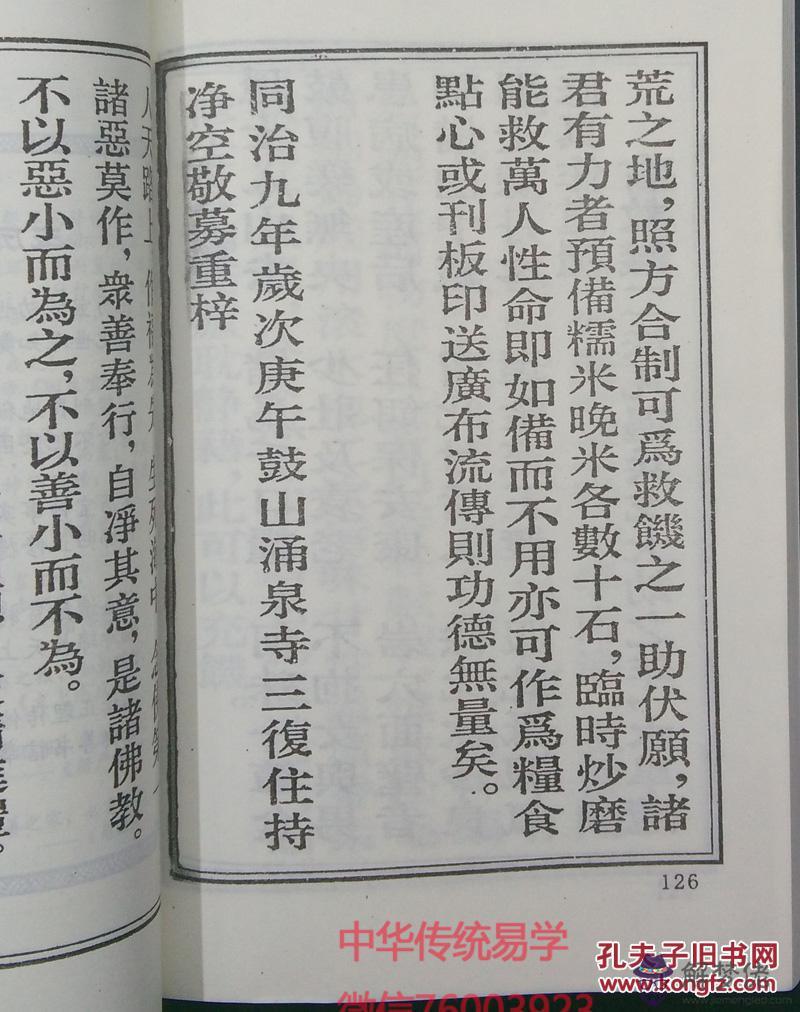 荒之地，照方合制可爲救饑之一助伏願，諸
君有力者預備糯米晚米各數十石，臨時炒磨
能救萬人性命即如備而不用亦可作爲糧食
點心或刊板印送廣布流傳則功德無量矣。
同治九年歲次庚午鼓山涌泉寺三復住持
净空敬募重梓
126
諸惡莫作，衆善奉行，自淨其意，是諸佛教。
不以惡小而為之，不以善小而不為。
中华传统易学
微信76003923
孔夫子旧书网
www.kongfz.com
解梦佬
www.jiemengleo.com